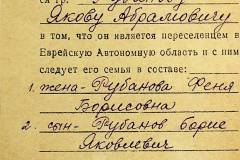 Якову Абрамовичу
в том, что он является переселенцем в
Еврейскую Автономную область и с ним
следует его семья в составе:
1. жена - Рубанова Феня
Борисовна
2. сын - Рубанов Борис
Яковлевич